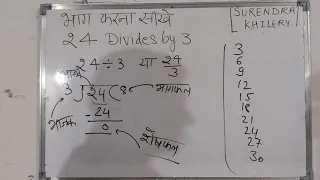 भाग करना सीखें
24 Divides by 3
24÷3 या 24/3
भाज्य
3 ) 24 ( 8 ← भागफल
भाजक
- 24
0 ← शेषफल
SURENDRA
KHILERY
3
6
9
12
15
18
21
24
27
30